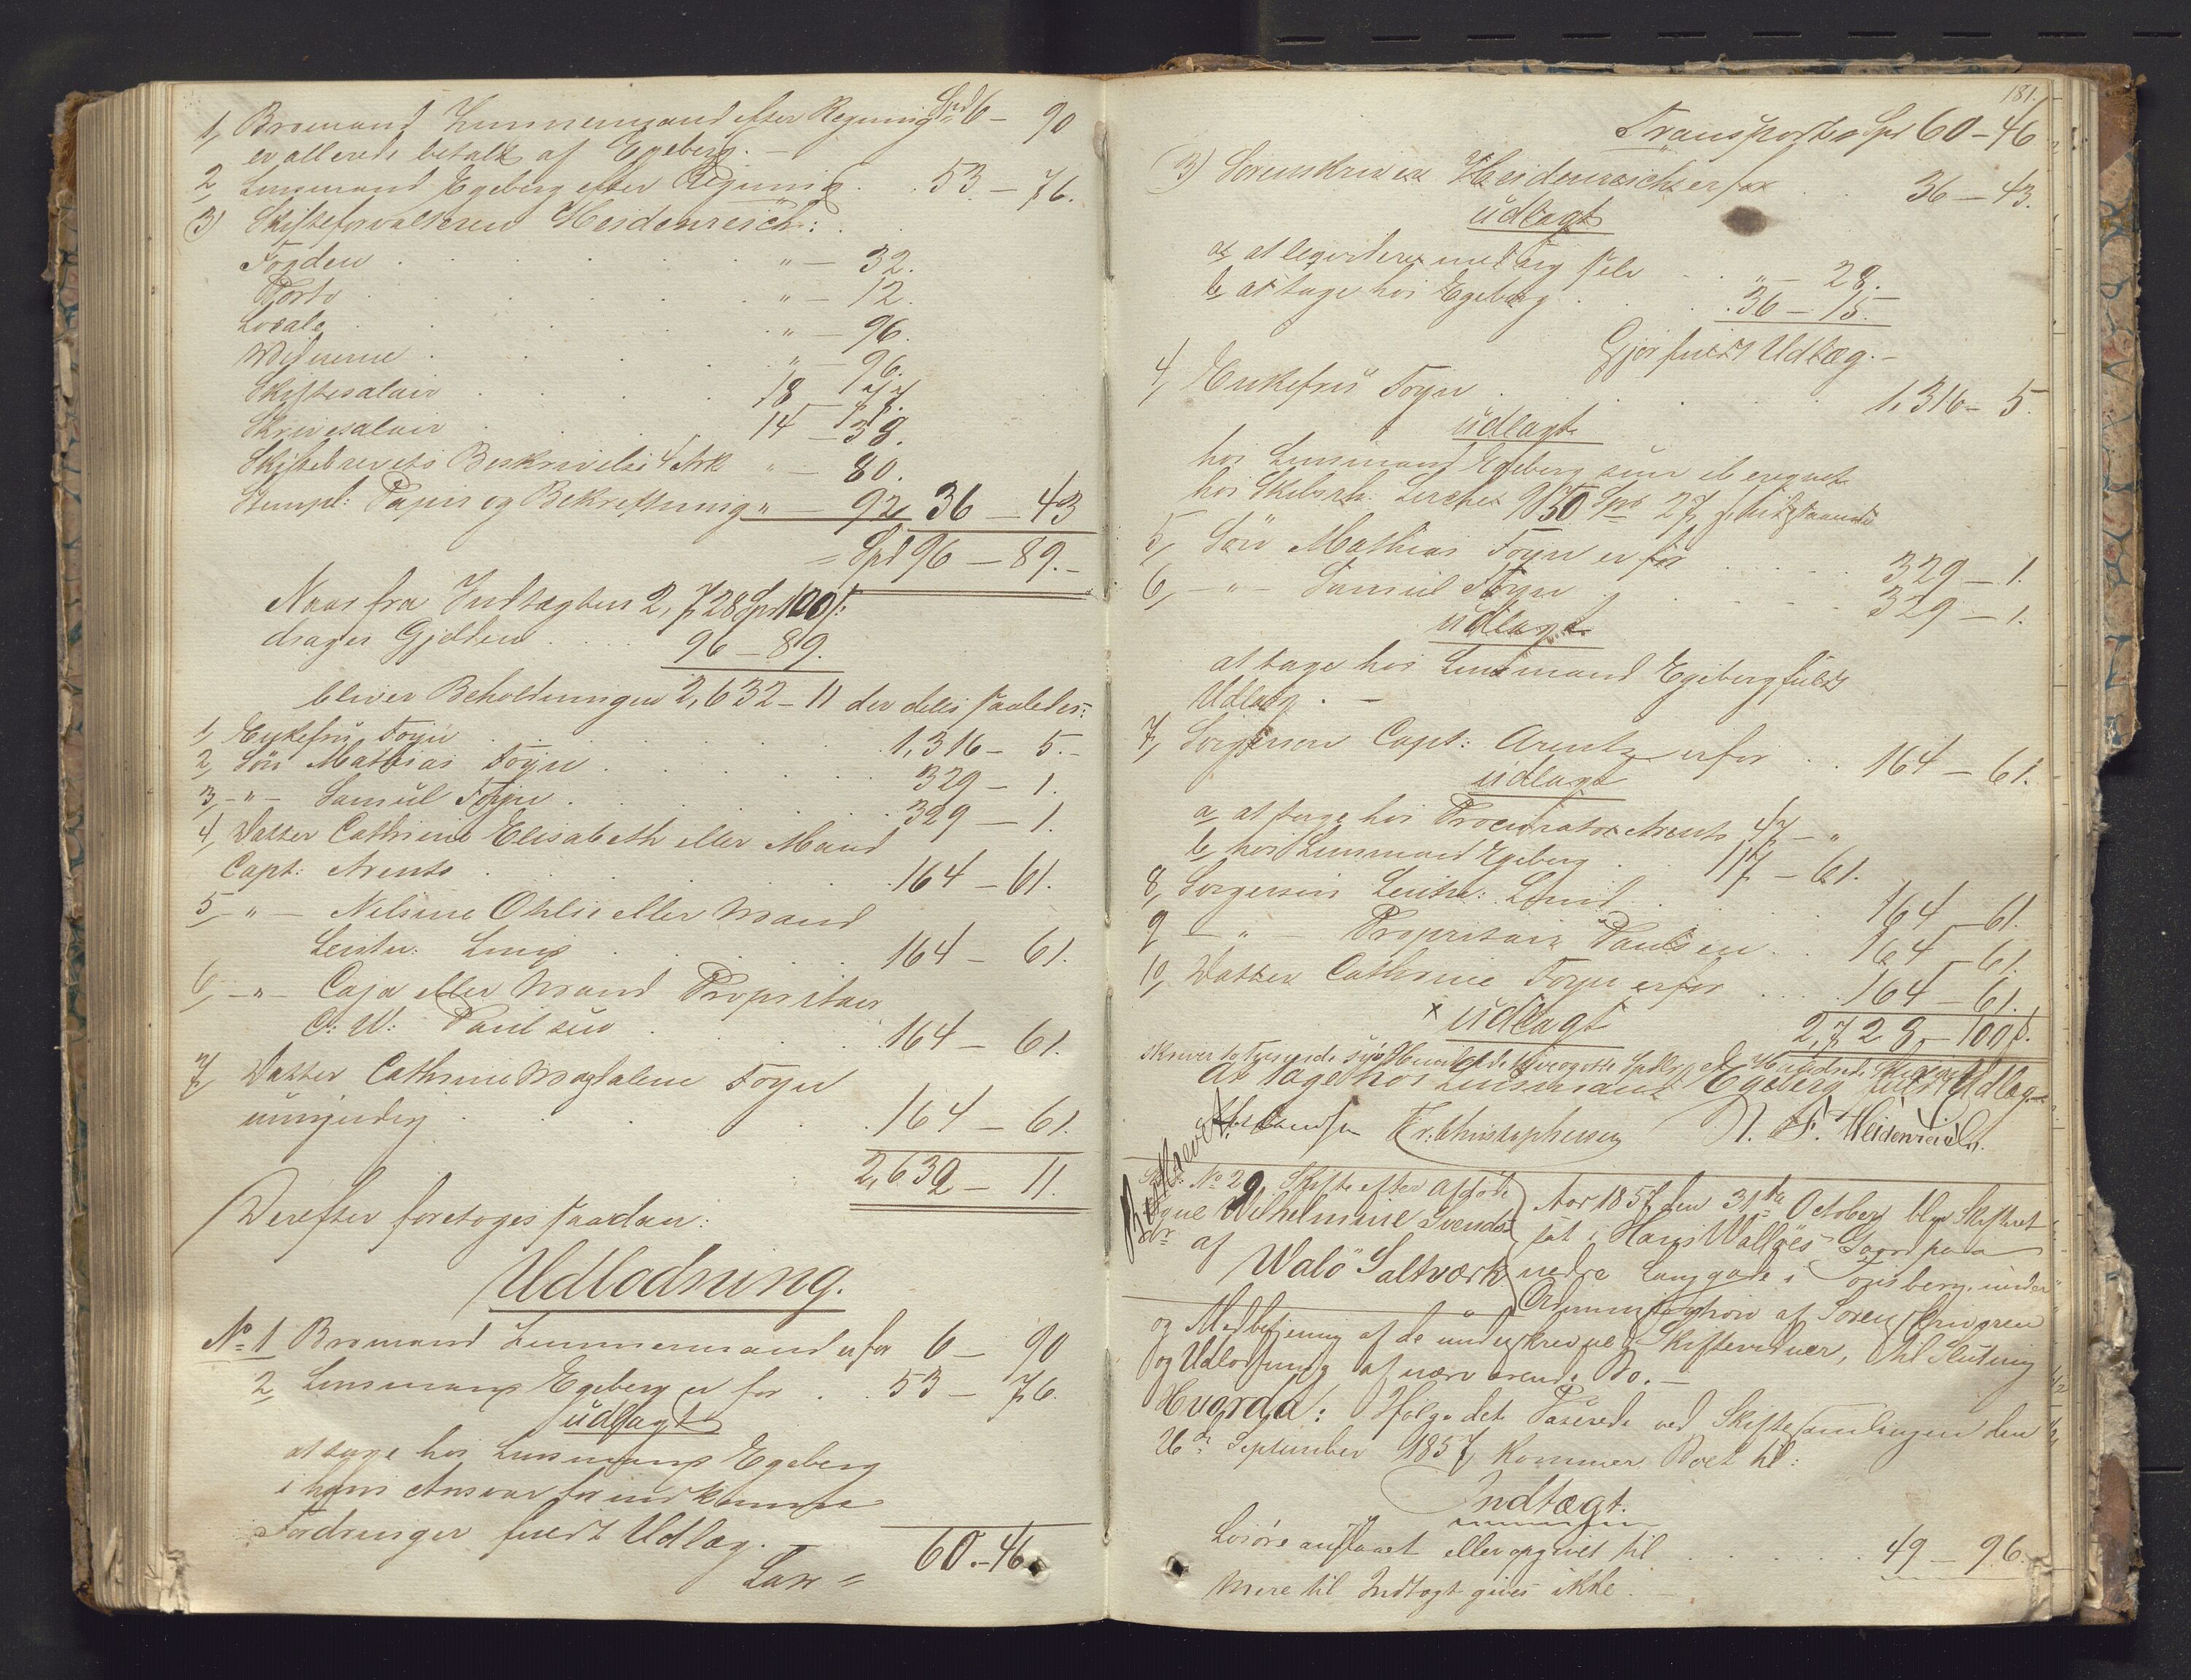 1, Bromand Zimmermand efter Regning Spd 6 – 90
er allerede betalt af Egeberg. –
2, Lensmand Egeberg efter Regning . . 53 – 76.
3) Skifteforvalteren Heidenreich:
Fogden . . . " – 32.
Porto . . . " – 12.
Locale . . . " – 96.
Vidnerne . . . " – 96.
Skiftesalair . . . 18
Skriversalair . . . 14 – 38.
Skiftebrevets Beskrivelse 4 Ark " – 80.
Stempl: Papir og Bekræftning " – 92, 36 – 43
= Spd 96 – 89. –
Naar fra Indtægten 2,728 Spd 100 s:
drages Gjelden . . 96 – 89.
bliver Beholdningen 2,632 – 11 der deles saaledes:
1, Enkefru Foyn . . . 1,316 – 5. –
2, Søn Mathias Foyn . . . 329 – 1.
3, – " – Samuel Foyn . . . 329 – 1.
4, Datter Cathrine Elisabeth eller Mand
Capt: Arentz . . . 164 – 61.
5 – " – Nilsine Othlie eller Mand
Leutn: Lund . . . 164 – 61.
6, – " – Caja eller Mand Propritair
C. W: Paulsen . . . 164 – 61.
7, Datter Cathrine Magdalene Foyn
umyndig . . . 164 – 61.
2,632 – 11.
Derefter foretoges saadan:
Udlodning.
No 1 Bromand Zimmermand er for 6 – 90
2, Lensmand Egeberg er for . . 53 – 76.
udlagt
at tage hos Lensmand Egeberg
i hans Ansvar for indkomne
Fordringer fuldt Udlæg. –
60. – 46.
Lar =
181.
Transporteres Spd 60 – 46
3) Sorenskriver Heidenreich er for . . 36 – 43.
udlagt
a, at liqvidere med sig selv . . " – 28.
b, at tage hos Egeberg . . . 36 – 15.
Gjør fuldt Udlæg. –
4, Enkefru Foyn . . . 1,316 – 5.
udlagt
hos Lensmand Egeberg som iberegnet
hos Skibsrh. Lerche 950 Spd 27 s tilstaaende
5, Søn Mathias Foyn er for . . . 329 – 1.
6, – " – Samuel Foyn . . . 329 – 1.
udlagt
at tage hos Lensmand Egeberg fuldt
Udlæg. –
7, Svigersøn Capt: Arentz er for . . 164 – 61.
udlagt
a, at tage hos Procurator Arentz 47 – "
b, hos Lensmand Egeberg . . 117 – 61.
8, Svigersøn Leutn: Lund . . . 164 – 61.
9 – " – Propritair Paulsen . . 164 – 61.
10, Datter Cathrine Foyn er for . . . 164 – 61.
x udlagt 2,728, – 100 s.
skriver totusinde syvhundrede tiveogotte Spdlr og et Hundrede Skilling
at tage hos Lensmand Egeberg fuldt Udlæg. –
Fr: Christophersen N. F. Heidenreich.
No 29. Skifte efter afdøde
Wilhelmine Svends
dr af Walö Saltværk
Aar 1857 den 31te October blev Skifteret
sat i Hans Walløes Gaard paa
nedre Langgade i Tønsberg, under
Administration af Sorenskriveren
og Medbetjening af de underskrevne Skiftevidner, til Slutning
og Udlodning af nærværende Bo. –
Hvorda: Ifølge det Paserede ved Skiftesamlingen den
26de September 1857, kommer Boet til:
Indtægt.
Løsøre anslaaet eller opgivet til . . . . 49 – 96.
Mere til Indtægt gives ikke. –